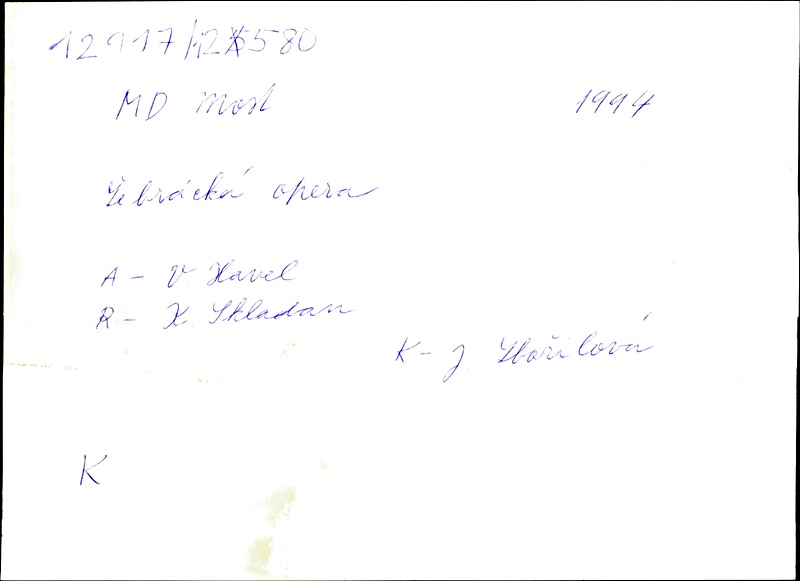 12917/125580
MD Most 1994
Žebrácká opera
A - V. Havel
R - K. Skladan
K - J. Zbořilová
K